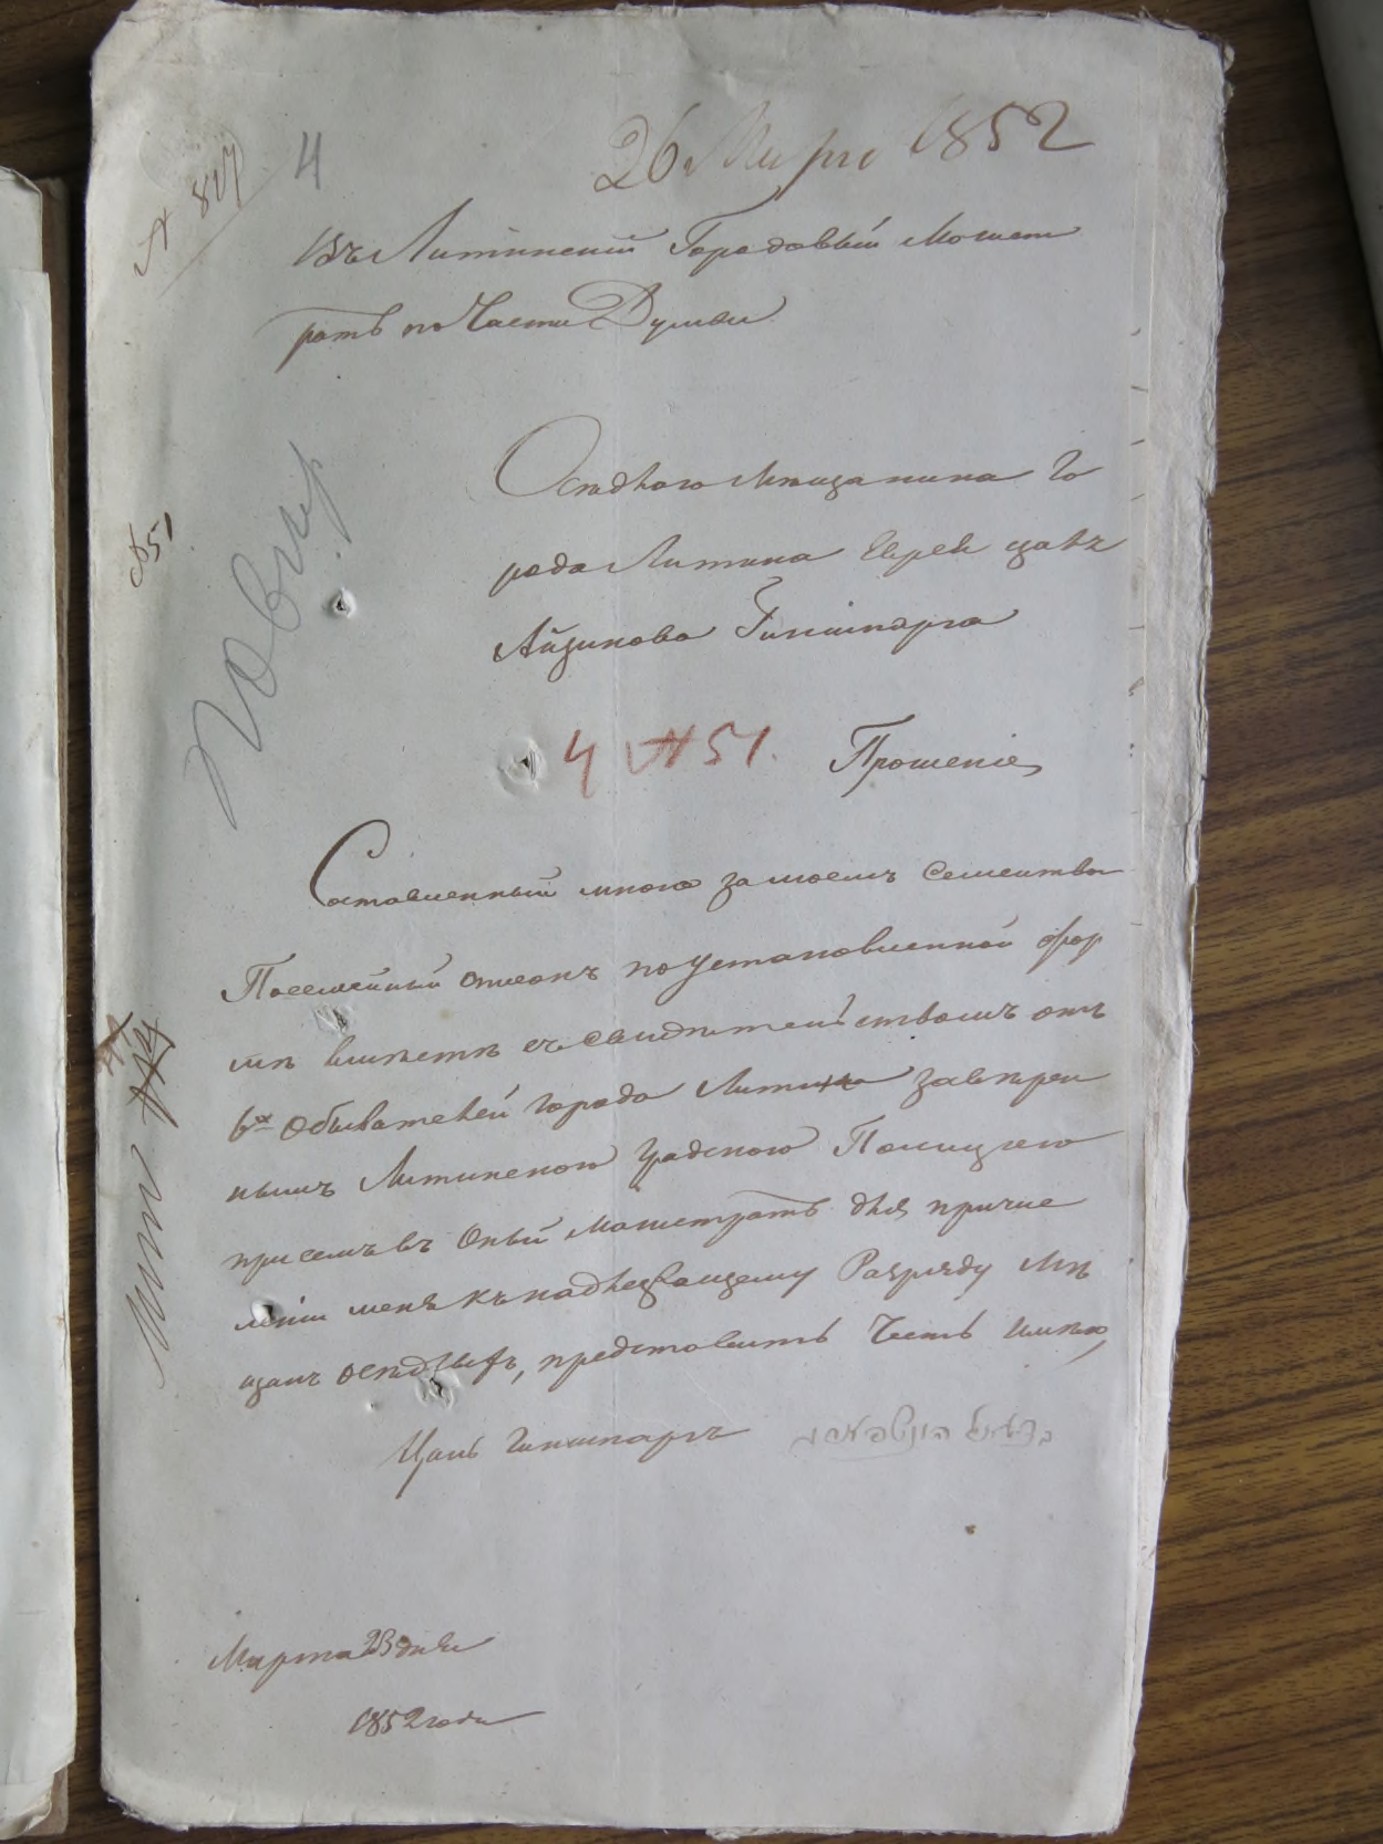 № 807
4
26 Марта 1852
Въ Литинский Городовый Магист
ратъ по Части Думы
Оседлого Мещанина Го
рода Литина Еврея
Айзикова Гиншпарга
№ 51
4 № 51. Прошеніе
Составленный мною за моемъ Семейством
Посемейный списокъ по установленной фор
ме вместе съ свидетельствомъ отъ
6х Обывателей города Литина
нымъ Литинскою Градскою Полициею
при семъ въ Оный Магистратъ для причис
леніи меня къ надлежащему Разряду Ме
щанъ оседлыхъ, представить Честь Имею,
Гиншпаргъ
Марта 23 дня
1852 года